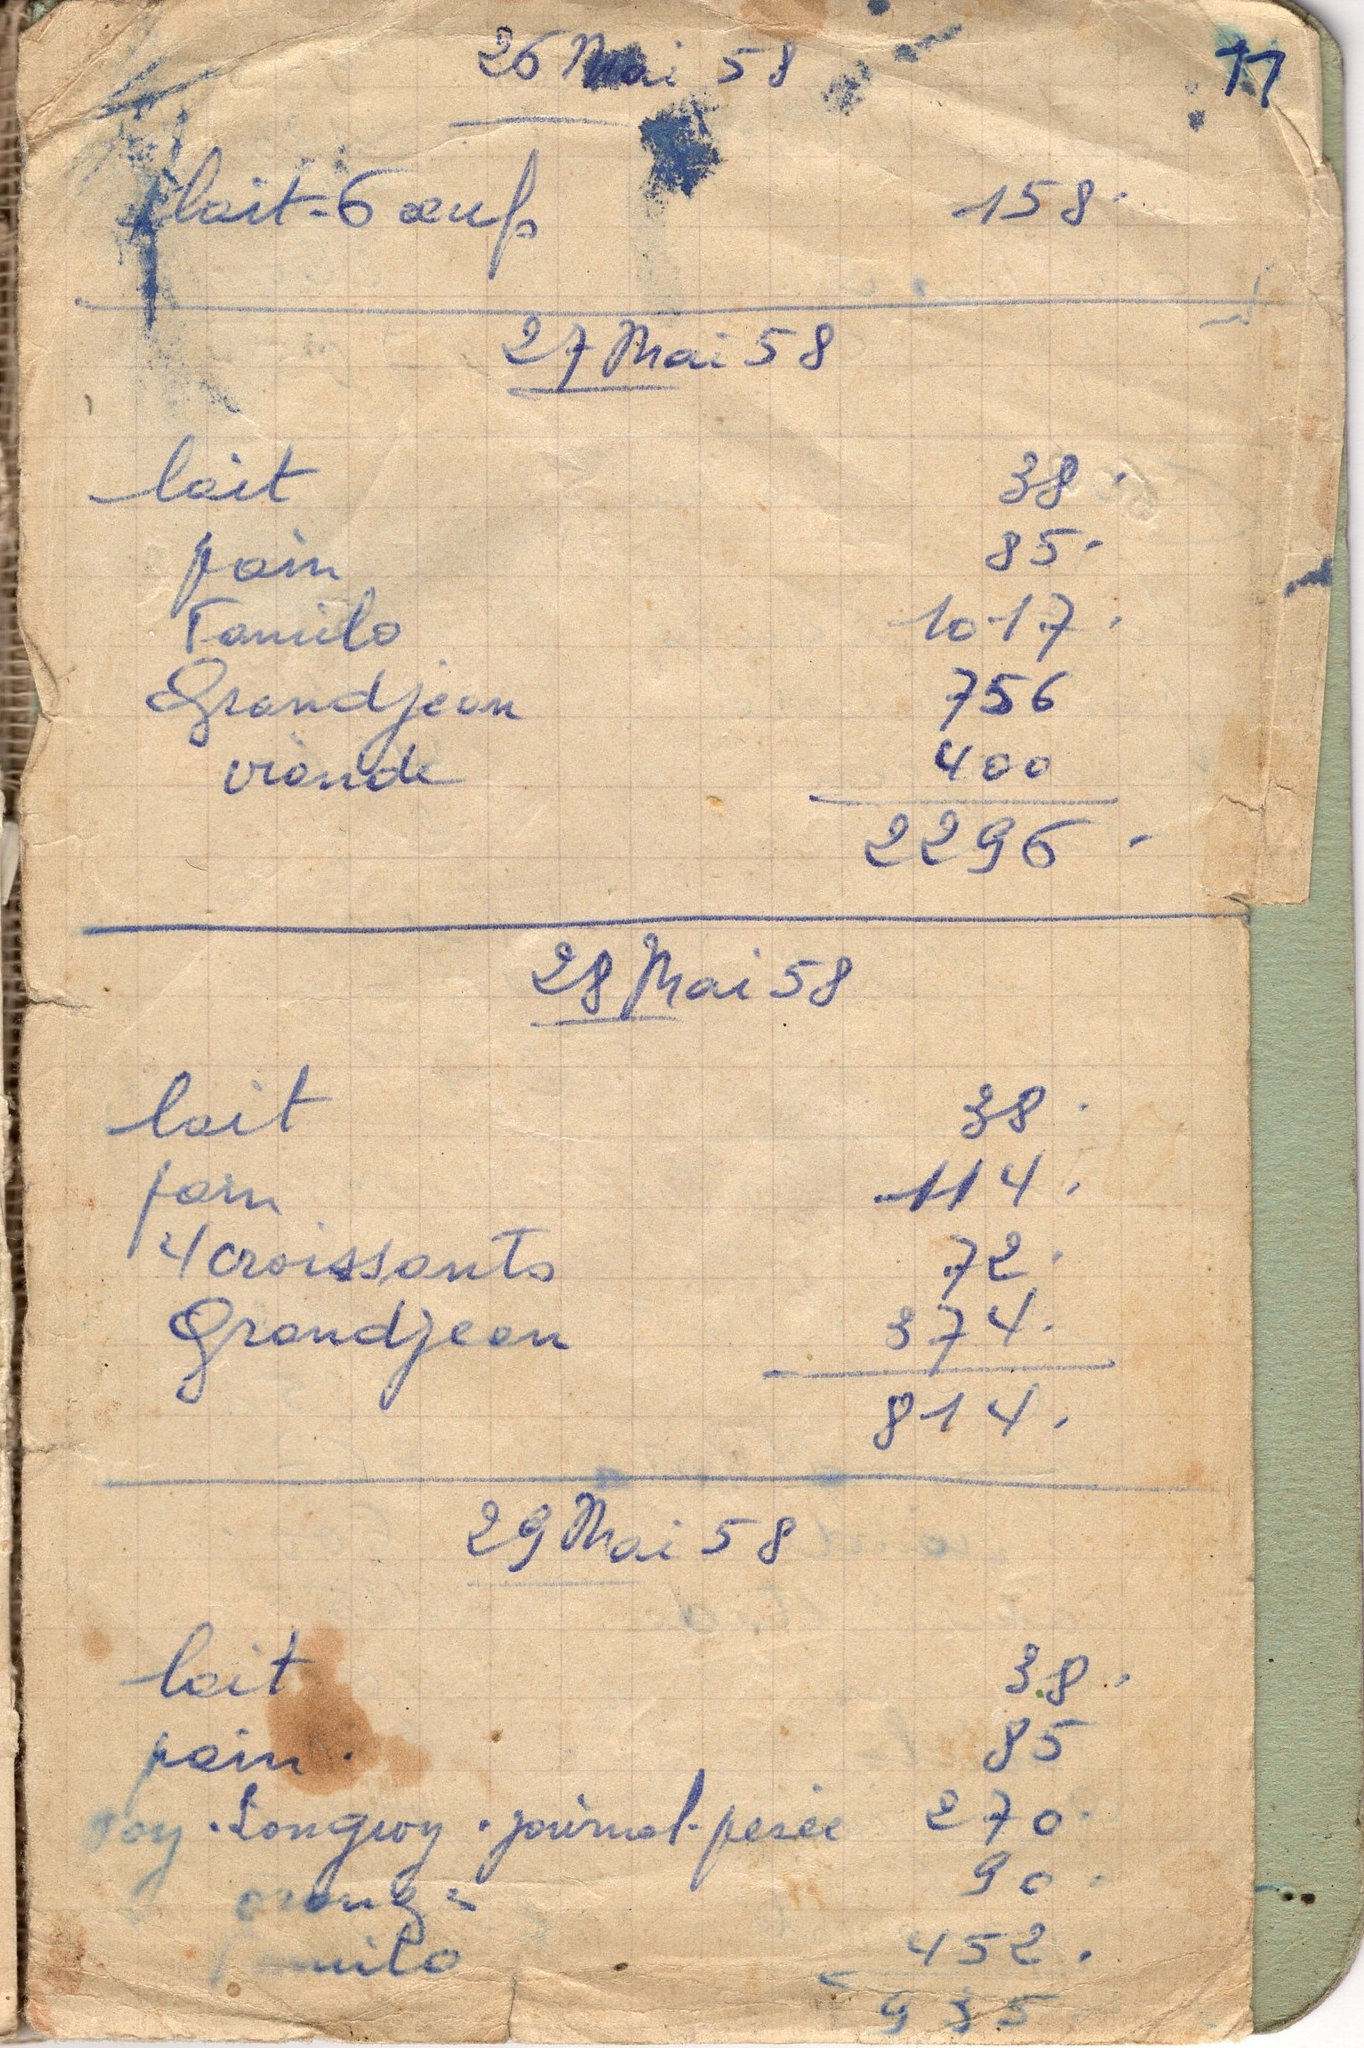 26 Mai 58
11
lait - 6 œufs 158.
27 Mai 58
lait 38.
pain 85.
Familo 1017.
Grandjean 756
viande 400
2296.
28 Mai 58
lait 38.
pain 114.
4 croissants 72.
Grandjean 374.
814.
29 Mai 58
lait 38.
pain. 85
Longwy. journal. pesée 270.
orange 90.
Familo 452.
935